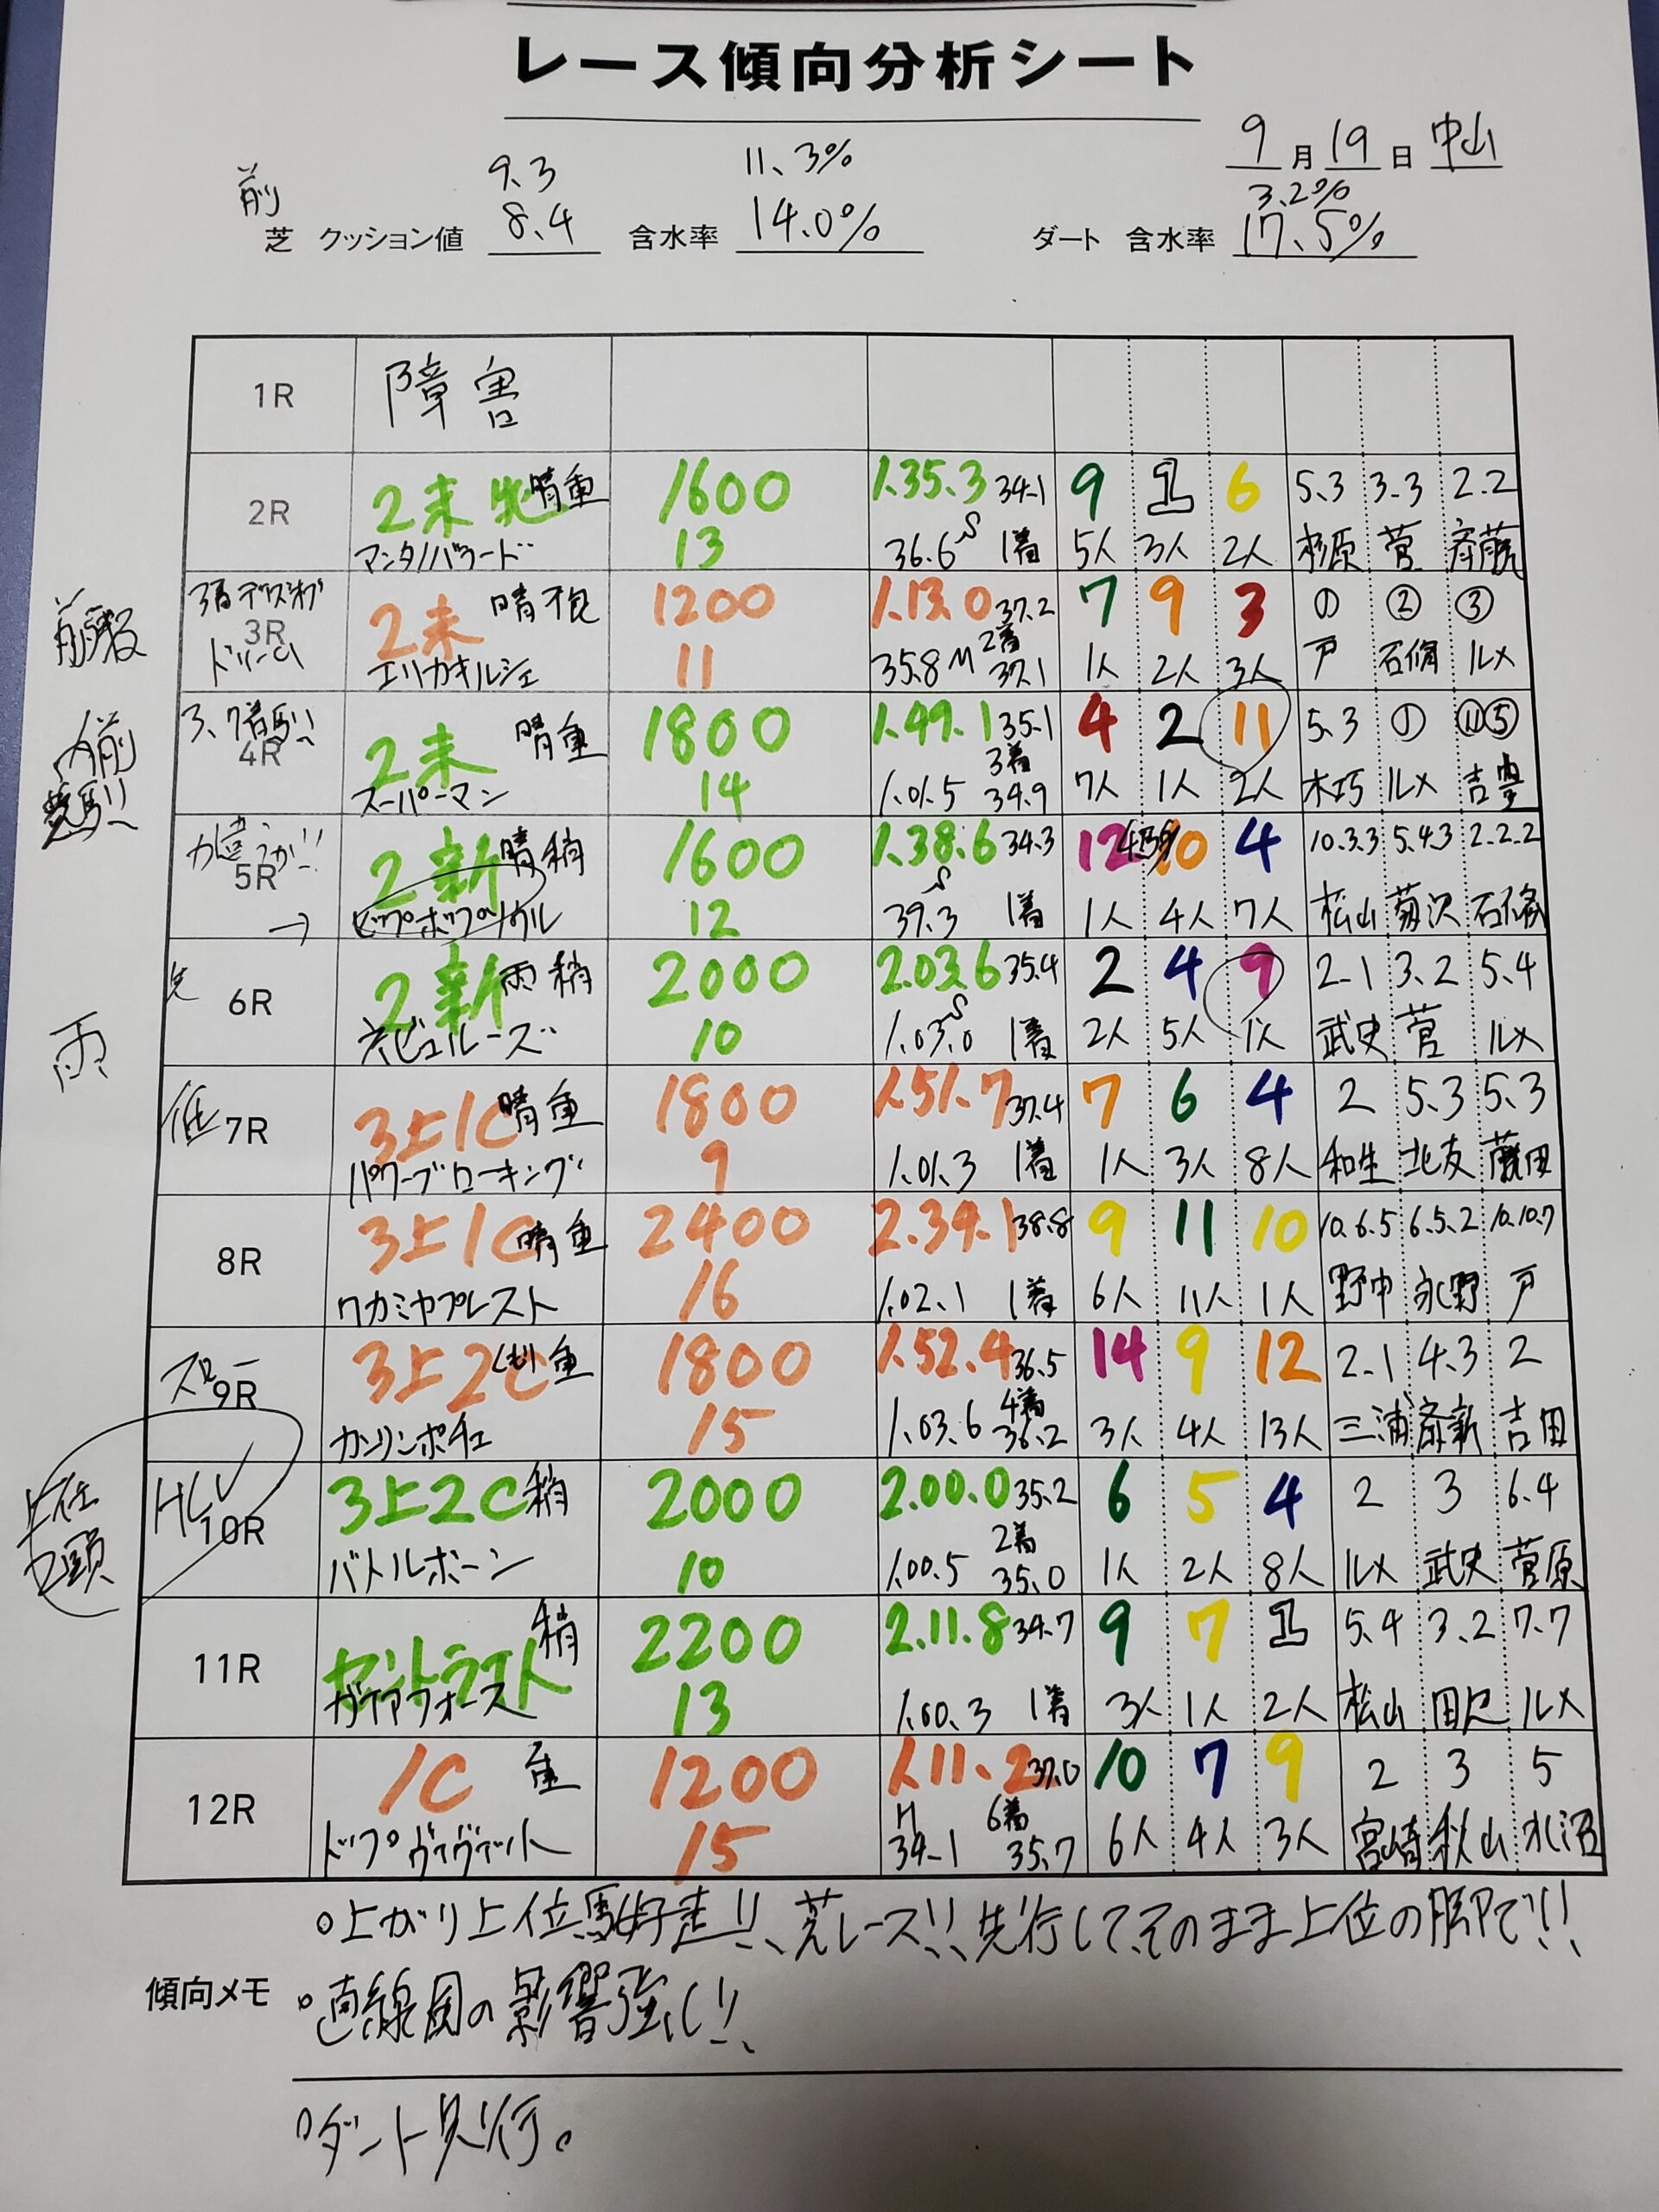 レース傾向分析シート
9月19日 中山
前 9.3 11.3% 3.2%
芝 クッション値 8.4 含水率 14.0% ダート 含水率 17.5%
1R 障害
2R 2未 晴重 1600 1.35.3 34.1 9 1 6 5.3 3.3 2.2
13 36.6 S 1着 5人 3人 2人 杉原 菅 斎藤
3R 2未 晴 1200 1.13.0 37.2 7 9 3 ① ② ③
ドリーム エリカオルシェ 11 35.8 M 2着 37.1 1人 2人 3人 戸 石脩 ルメ
4R 2未 晴重 1800 1.49.1 35.1 4 2 11 5.3 ① ⑪⑤
スーパーマン 14 1.01.5 3着 34.9 7人 1人 2人 木巧 ルメ 吉豊
5R 2新 晴稍 1600 1.38.6 34.3 12 10 4 10.3.3 5.4.3 2.2.2
→ 12 S 39.3 1着 1人 4人 7人 松山 菊沢 石脩
雨 6R 2新 雨稍 2000 2.03.6 35.4 2 4 9 2.1 3.2 5.4
ネビュルーズ 10 S 1.03.0 1着 2人 5人 1人 武史 菅 ルメ
低 7R 3上1C 晴重 1800 1.51.7 37.4 7 6 4 2 5.3 5.3
パワーブローキング 9 1.01.3 1着 1人 3人 8人 和生 北友
8R 3上1C 晴重 2400 2.39.1 38.8 9 11 10 10.6.5 6.5.2 10.10.7
ワカミヤプレスト 16 1.02.1 1着 6人 11人 1人 野中 永野 戸
スロー 9R 3上2C くもり重 1800 1.52.4 36.5 14 9 12 2.1 4.3 2
カンリンポチェ 15 1.03.6 4着 36.2 3人 4人 13人 三浦 斎新 吉田
10R 3上2C 稍 2000 2.00.0 35.2 6 5 4 2 3 6.4
バトルボーン 10 1.00.5 2着 35.0 1人 2人 8人 ルメ 武史 菅原
11R セントライト 稍 2200 2.11.8 34.7 9 7 1 5.4 3.2 7.7
ガイアフォース 13 1.00.3 1着 3人 1人 2人 松山 田辺 ルメ
12R 1C 重 1200 1.11.2 37.0 10 7 9 2 3 5
ドップヴァヴァット 15 H 34.1 6着 35.7 6人 4人 3人 宮崎 秋山 水沼
○上がり上位馬好走!!、荒レース!!、先行してそのまま上位の脚で!!
傾向メモ ○直線風の影響強し!!
○ダート先行。